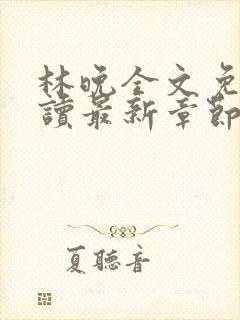 林晚全文免
讀最新章節
夏聽音